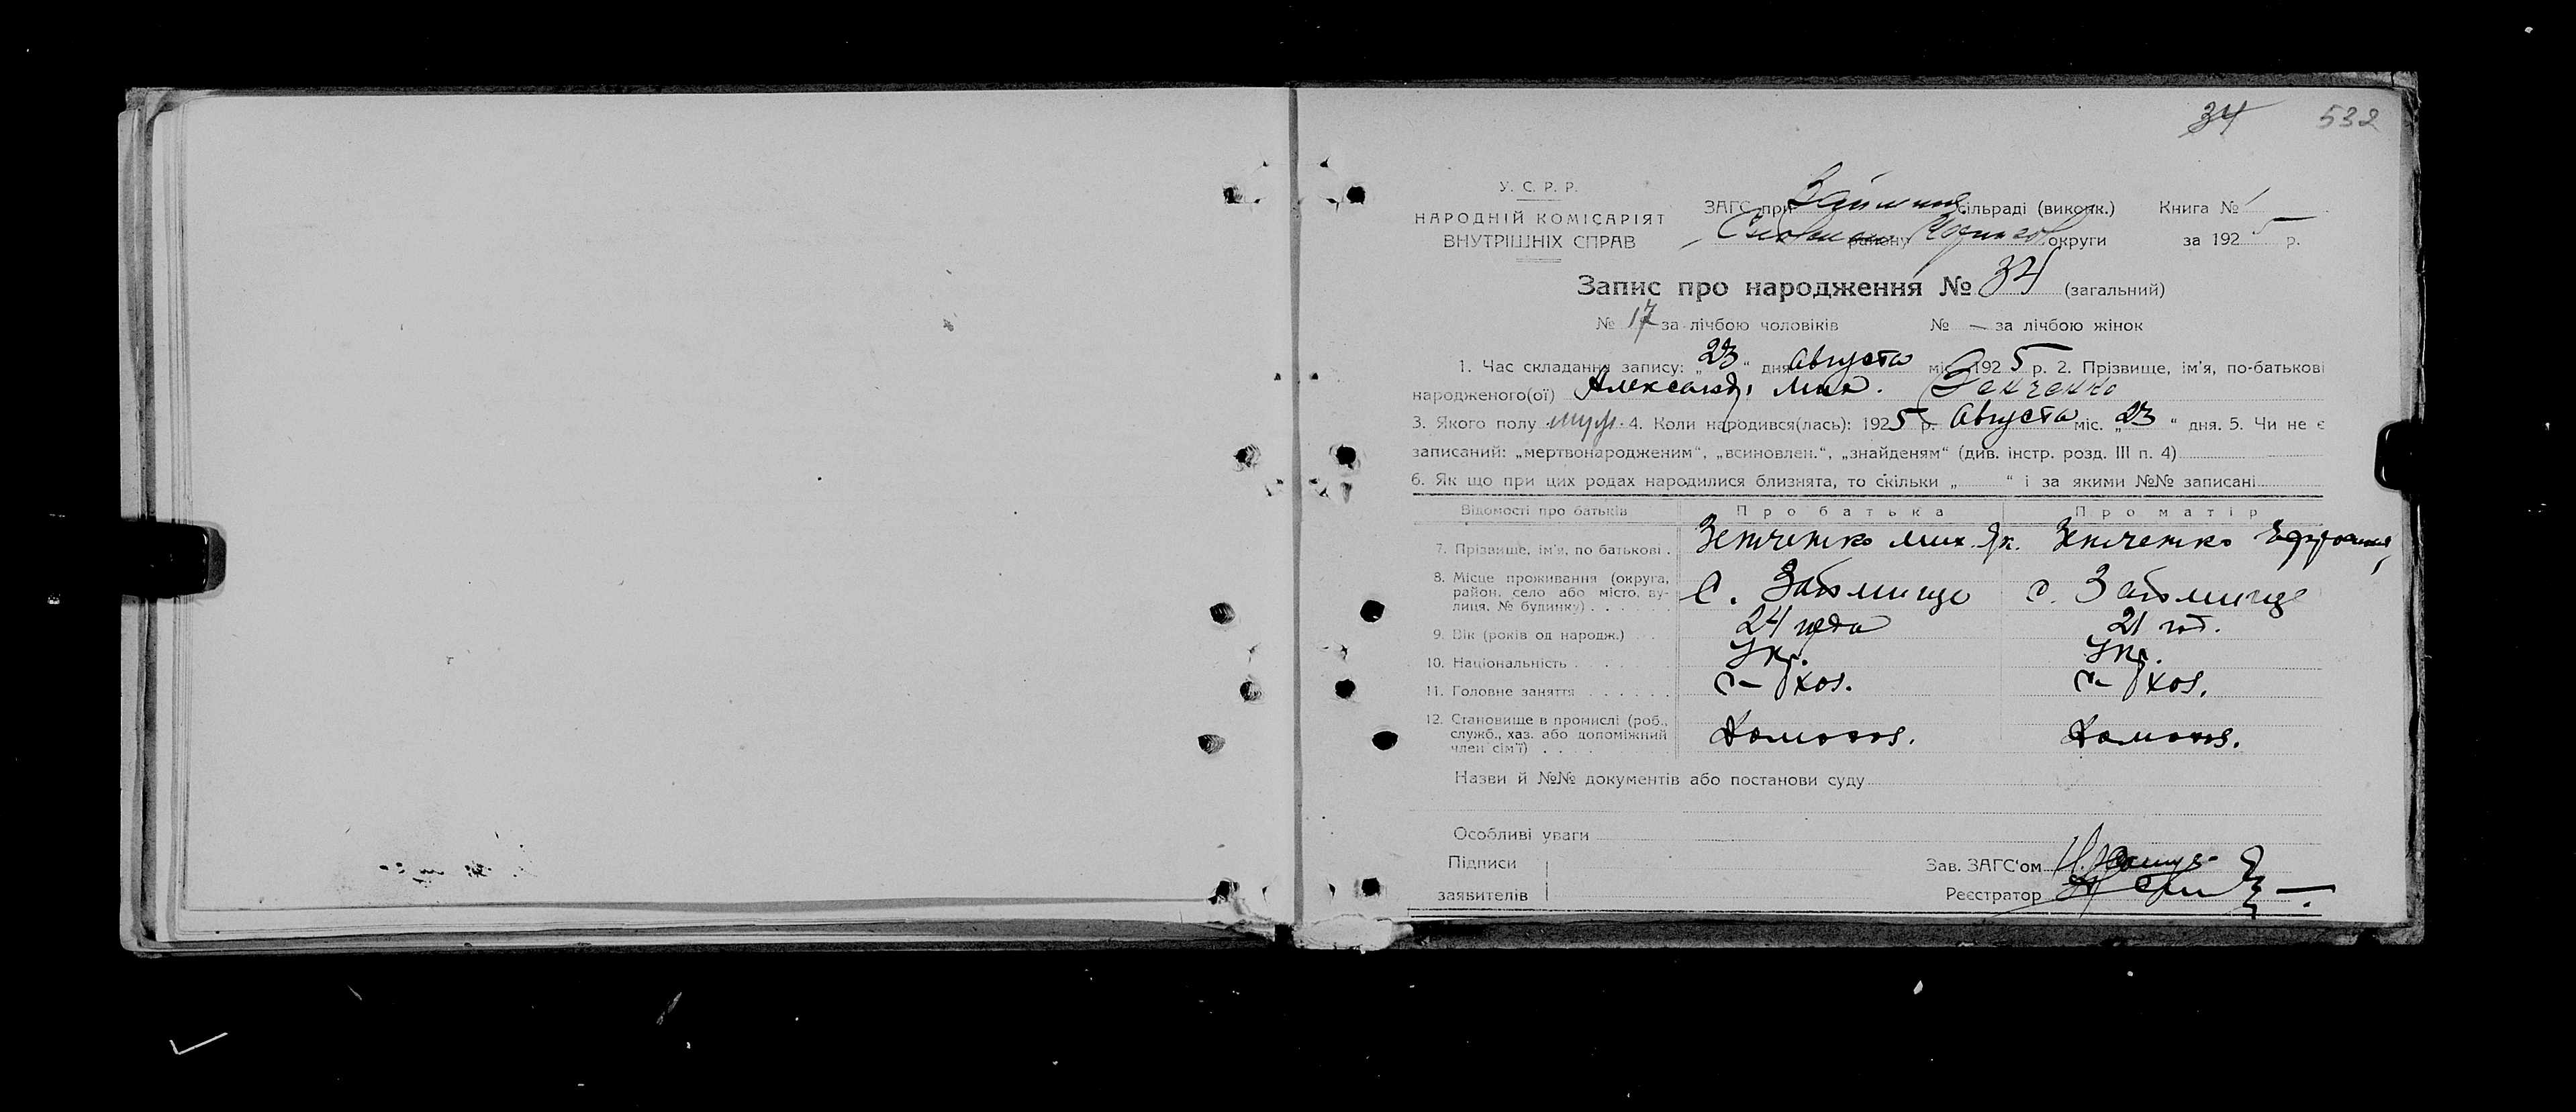 34 532
У. С. Р. Р.
НАРОДНІЙ КОМІСАРІЯТ
ВНУТРІШНІХ СПРАВ
ЗАГС при сільраді (виконк.) Книга № 1
району округи за 1925 р.
Запис про народження № 34 (загальний)
№ 17 за лічбою чоловіків № — за лічбою жінок
1. Час складання запису: „23“ дня августа міс. 1925 р. 2. Прізвище, ім'я, по-батькові
народженого(ої) Александр Мих. Зенченко
3. Якого полу муж. 4. Коли народився(лась): 1925 р. Августа міс. „23“ дня. 5. Чи не є
записаний: „мертвонародженим“, „всиновлен.“, „знайденям“ (див. інстр. розд. III п. 4)
6. Як що при цих родах народилися близнята, то скільки „ “ і за якими №№ записані
Відомості про батьків Про батька Про матір
7. Прізвище, ім'я, по батькові . Зенченко Мих. Як. Зенченко Ефросиния
8. Місце проживання (округа,
район, село або місто, ву-
лиця, № будинку) . . . . . С. Займище с. Займище
9. Вік (років од народж.) . . . 24 года 21 год.
10. Національність . . . . . Укр. Укр.
11. Головне заняття . . . . . . с-хоз. с-хоз.
12. Становище в промислі (роб.,
служб., хаз. або допоміжний
член сім'ї) . . . Домохоз. Домохоз.
Назви й №№ документів або постанови суду
Особливі уваги
Підписи
заявителів
Зав. ЗАГС'ом
Реєстратор